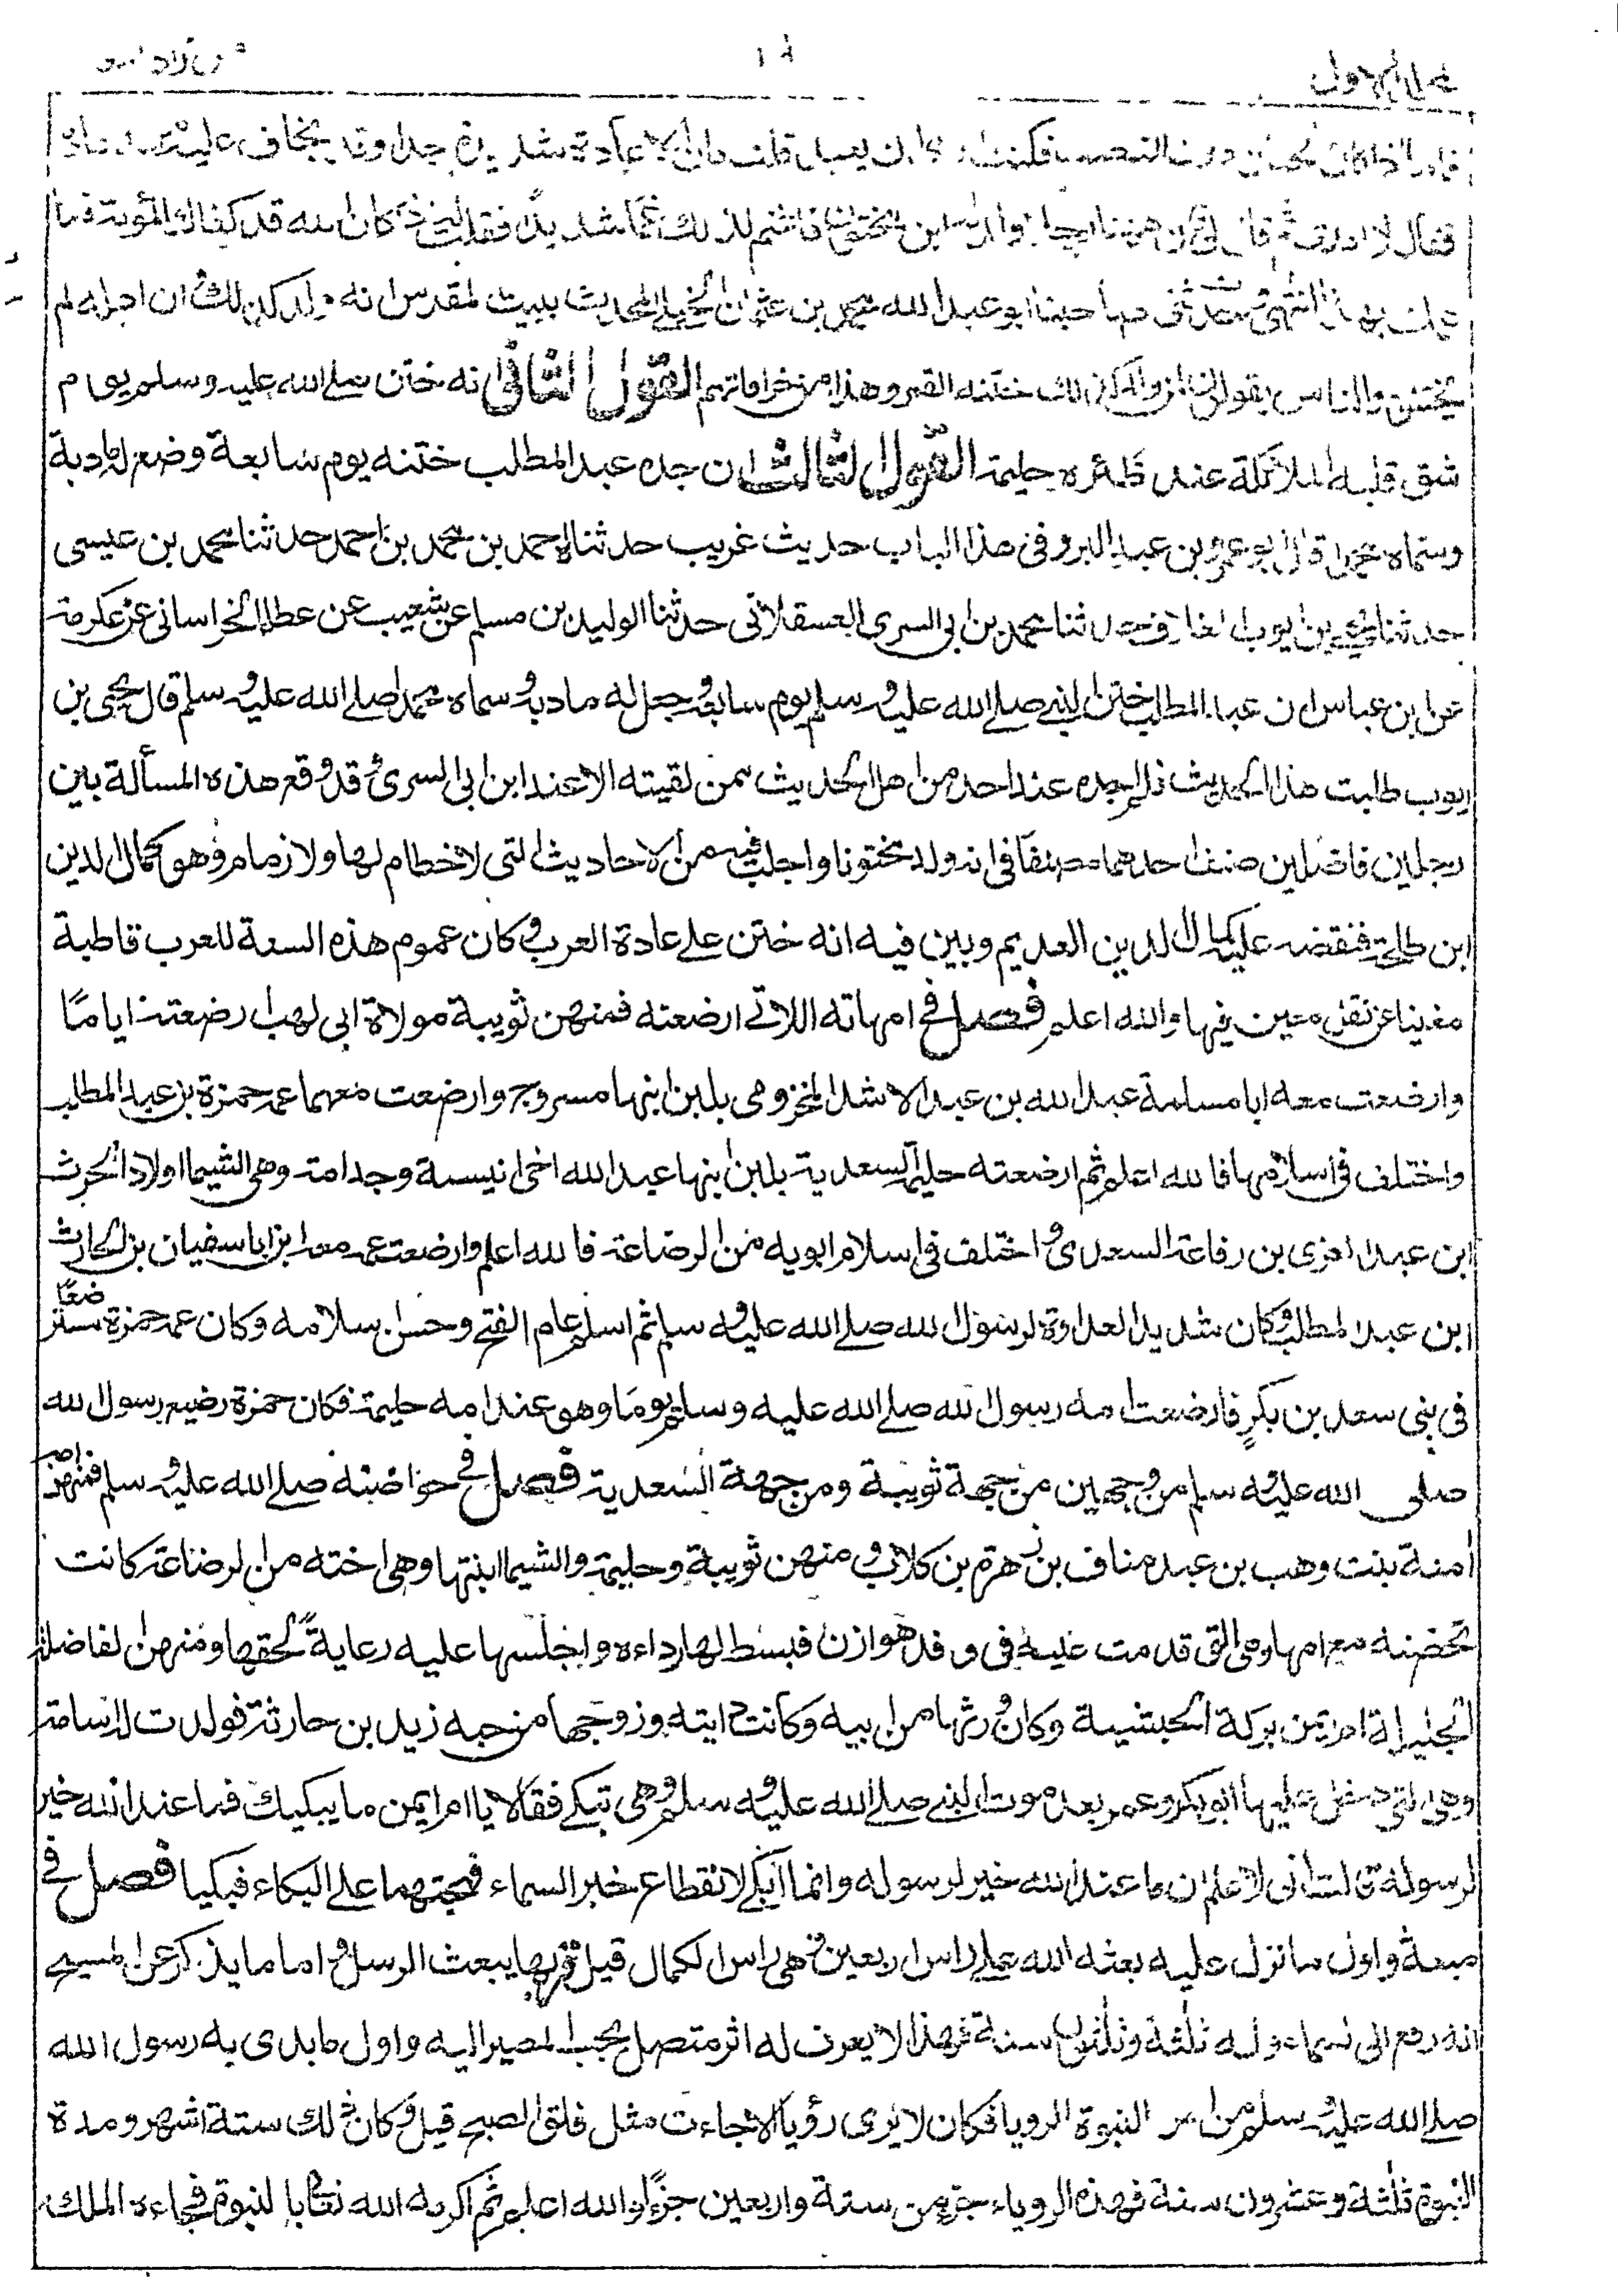 ١٨
فقال لا ادرى ثم قال لى فان ههنا رجلا ولد له ابن مختون فاغتم لذلك غما شديدا فقلت له اذا كان الله قد كفاك المؤنة فما
غمك بهذا انتهى وحدثنى صاحبنا ابو عبد الله محمد بن عثمان الخليلى المحدث ببيت المقدس انه ولد كذلك وان اهله لم
يختنوه والناس يقولون لمن ولد كذلك ختنه القمر وهذا من خرافاتهم القول الثانى انه ختن صلى الله عليه وسلم يوم
شق قلبه الملائكة عند ظئره حليمة القول الثالث ان جده عبد المطلب ختنه يوم سابعة وضع له مادبة
وسماه محمدا قال ابو عمرو بن عبد البر وفى هذا الباب حديث غريب حدثناه احمد بن محمد بن احمد حدثنا محمد بن عيسى
حدثنا يحيى بن ايوب العلاف حدثنا محمد بن ابى السرى العسقلانى حدثنا الوليد بن مسلم عن شعيب عن عطاء الخراسانى عن عكرمة
عن ابن عباس ان عبد المطلب ختن النبى صلے الله عليه وسلم يوم سابعه وجعل له مادبة وسماه محمدا صلے الله عليه وسلم قال يحيى بن
ايوب طلبت هذا الحديث فلم اجده عند احد من اهل الحديث ممن لقيته الا عند ابن ابى السرى وقد وقع هذه المسألة بين
رجلين فاضلين صنف احدهما مصنفا فى انه ولد مختونا واجلب فيه من الاحاديث التى لا خطام لها ولا زمام وهو كمال الدين
ابن طلحة فنقضه عليه كمال الدين العديم وبين فيه انه ختن علے عادة العرب وكان عموم هذه السعة للعرب قاطبة
مغنيا عن نقل معين فيها والله اعلم فصل فى امهاته اللاتے ارضعنه فمنهن ثويبة مولاة ابى لهب ارضعته اياما
وارضعت معه ابا سلمة عبد الله بن عبد الاشد المخزومى بلبن ابنها مسروح وارضعت معهما عمه حمزة بن عبد المطلب
واختلف فى اسلامها فالله اعلم ثم ارضعته حليمة السعدية بلبن ابنها عبد الله اخى انيسة وجدامة وهى الشيما اولاد الحرث
ابن عبد العزى بن رفاعة السعدى واختلف فى اسلام ابويه من الرضاعة فالله اعلم وارضعت معه ابن عمه ابا سفيان بن الحارث
ابن عبد المطلب وكان شديد العداوة لرسول الله صلے الله عليه وسلم ثم اسلم عام الفتح وحسن اسلامه وكان عمه حمزة مسترضعًا
فى بنى سعد بن بكر فارضعت امه رسول الله صلے الله عليه وسلم يوما وهو عند امه حليمة فكان حمزة رضيع رسول الله
صلى الله عليه وسلم من وجهين من جهة ثويبة ومن جهة السعدية فصل فى حواضنه صلے الله عليه وسلم فمنهن امه
آمنة بنت وهب بن عبد مناف بن زهرة بن كلاب ومنهن ثويبة وحليمة والشيما ابنتها وهى اخته من الرضاعة كانت
تحضنه مع امها وهى التى قدمت عليه فى وفد هوازن فبسط لها رداءه واجلسها عليه رعاية لحقها ومنهن الفاضلة
الجليلة ام ايمن بركة الحبشية وكان ورثها من ابيه وكانت دايته وزوجها من حبه زيد بن حارثة فولدت له اسامة
وهى التى دخل عليها ابو بكر وعمر بعد موت النبى صلے الله عليه وسلم وهى تبكے فقالا يا ام ايمن ما يبكيك فما عند الله خير
لرسوله قالت انى لاعلم ان ما عند الله خير لرسوله وانما ابكے لانقطاع خبر السماء فهيجتهما علے البكاء فبكيا فصل فى
مبعثه واول ما نزل عليه بعثه الله علے راس اربعين وهى راس الكمال قيل ولها يبعث الرسل واما ما يذكر عن المسيح
انه رفع الى السماء وله ثلثة وثلثون سنة فهذا لا يعرف له اثر متصل يجب المصير اليه واول ما بدى به رسول الله
صلے الله عليه وسلم من امر النبوة الرويا فكان لا يرى رؤيا الا جاءت مثل فلق الصبح قيل وكان ذلك ستة اشهر ومدة
النبوة ثلثة وعشرون سنة فهذه الروياء جزء من ستة واربعين جزءا والله اعلم ثم اكرمه الله تعالى بالنبوة فجاءه الملك